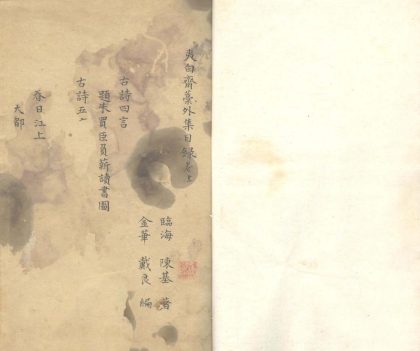 夷白齋藁外集目録卷上
臨海 陳基 著
金華 戴良 編
古詩四言
題朱買臣負薪讀書圖
古詩五
春日江上
大鄣